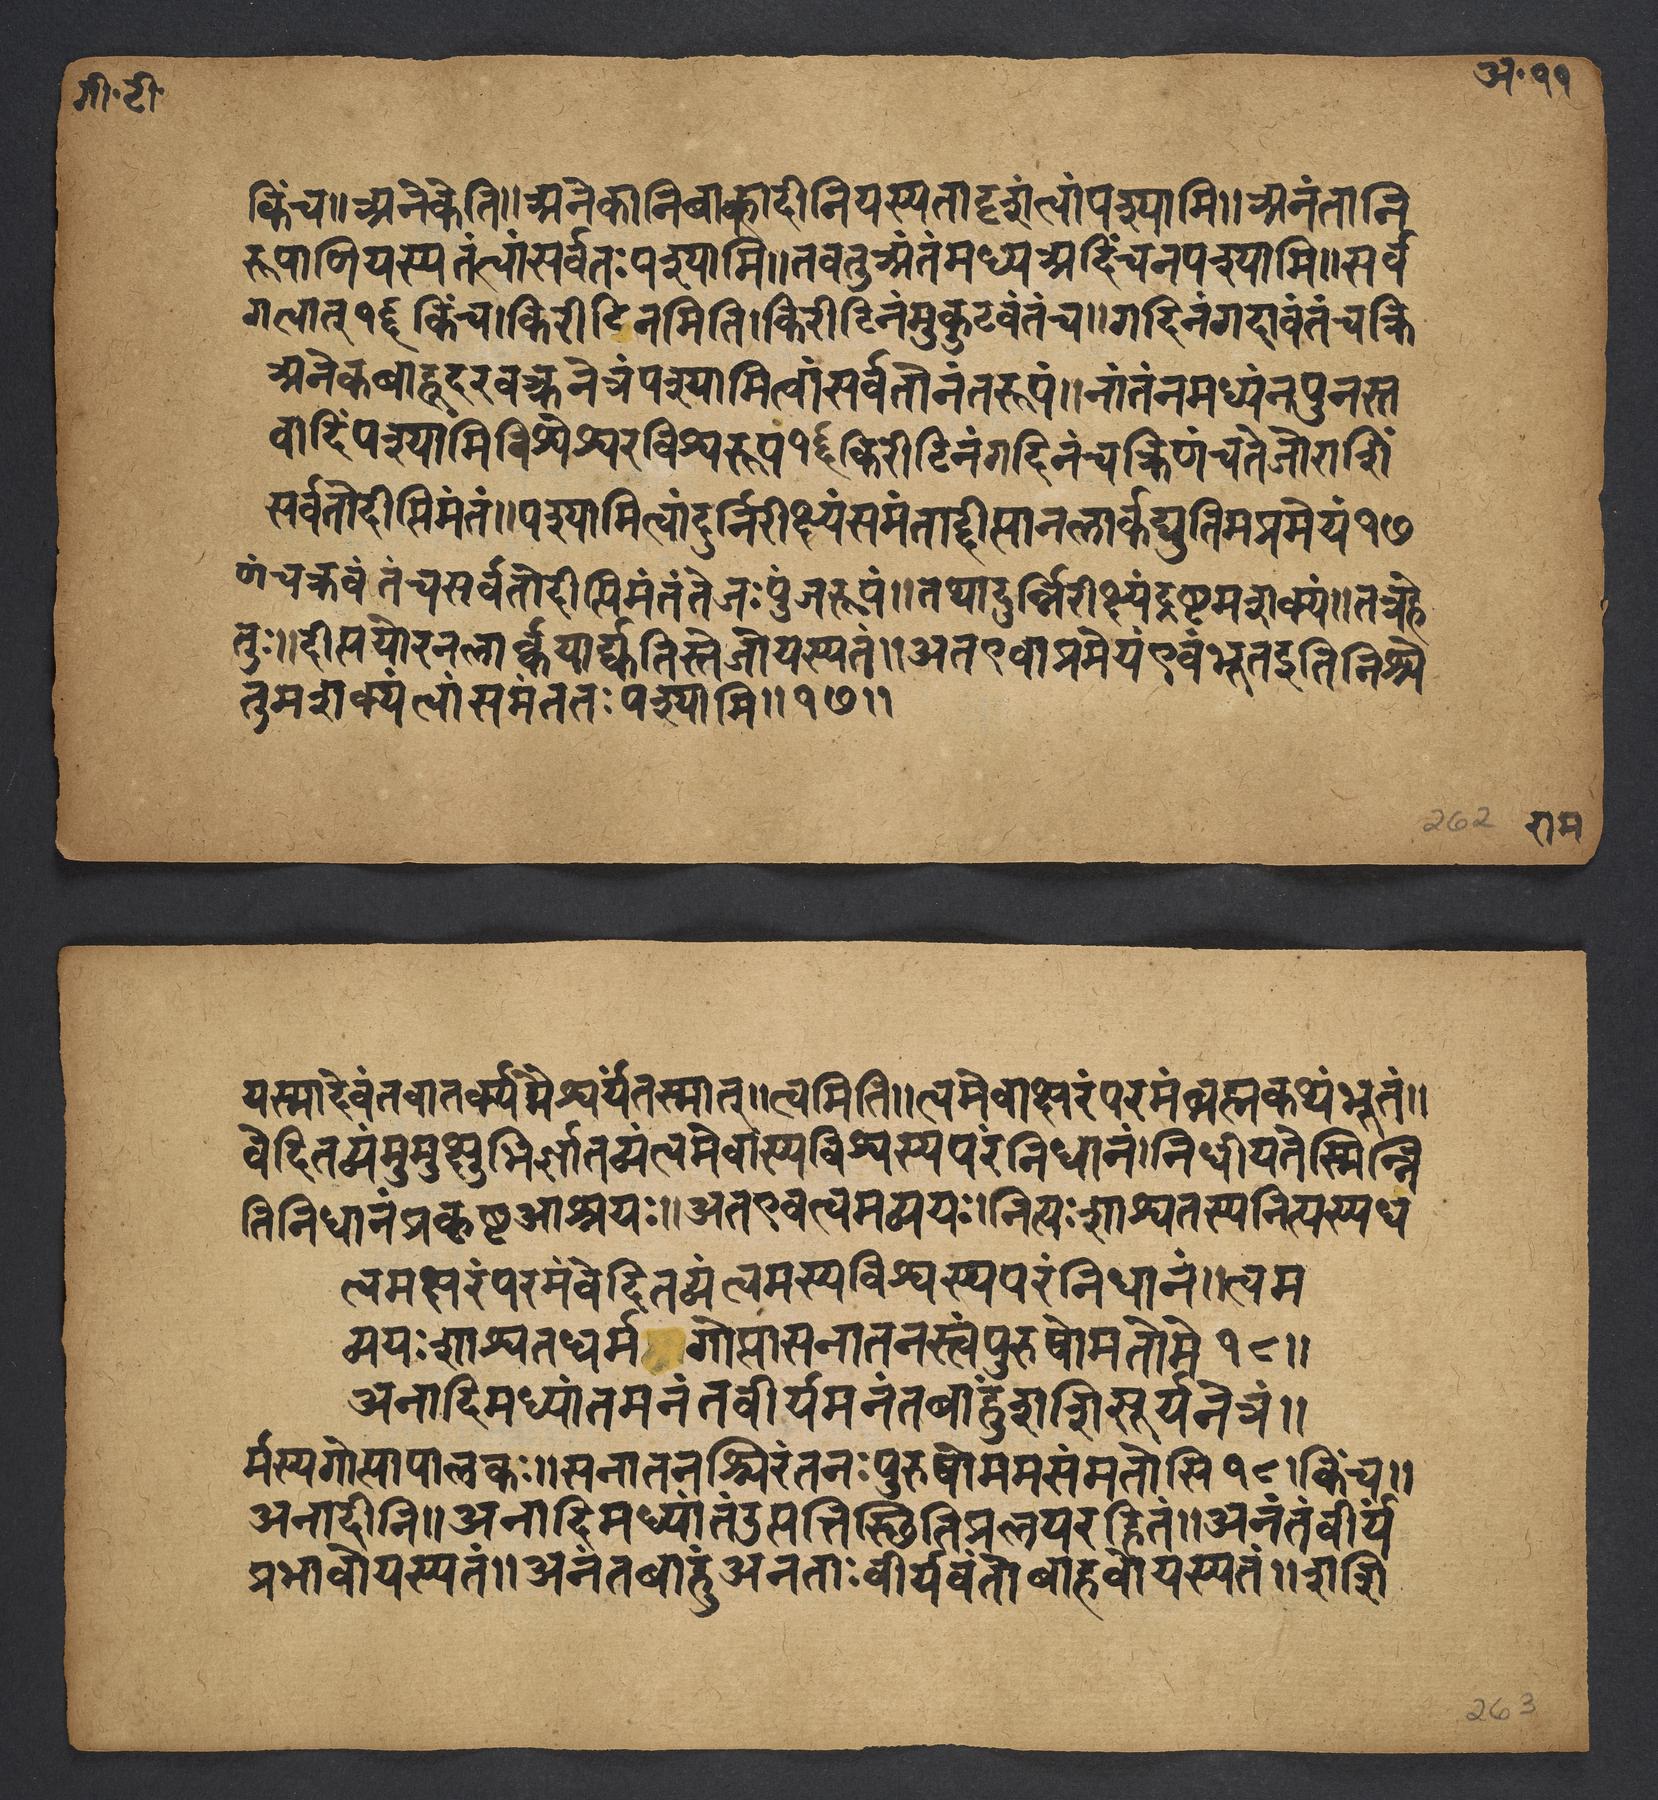 गी॰टी॰
अ॰११
किंच॥अनेकेति॥अनेकानिबाह्वादीनियस्यतादृशंत्वांपश्यामि॥अनंतानि
रूपाणियस्यतंत्वांसर्वतःपश्यामि॥तवतुअंतंमध्यअदिंचनपश्यामि॥सर्व
गत्वात्१६किंच।किरीटिनमिति।किरीटिनंमुकुटवंतंच॥गदिनंगदावंतंचक्रि
अनेकबाहूदरवक्त्रनेत्रंपश्यामित्वांसर्वतोनंतरूपं॥नांतंनमध्यंनपुनस्त
वादिंपश्यामिविश्वेश्वरविश्वरूप१६किरीटिनंगदिनंचक्रिणंचतेजोराशिं
सर्वतोदीप्तिमंतं॥पश्यामित्वांदुर्निरीक्ष्यंसमंताद्दीप्तानलार्कद्युतिमप्रमेयं१७
णंचक्रवंतंचसर्वतोदीप्तिमंतंतेजःपुंजरूपं॥तथादुर्न्निरीक्ष्यंद्रष्टुमशक्यं॥तत्रहे
तुः॥दीप्तयोरनलार्क्कयोर्द्युतिस्तेजोयस्यतं॥अतएवाप्रमेयंएवंभूतइतिनिश्चे
तुमशक्यंत्वांसमंततःपश्यामि॥१७॥
262
राम
यस्मादेवंतवातर्क्यमैश्वर्यंतस्मात्॥त्वमिति॥त्वमेवाक्षरंपरमंब्रह्मकथंभूतं॥
वेदितव्यंमुमुक्षुभिर्ज्ञातव्यंत्वमेवास्यविश्वस्यपरंनिधानं।निधीयतेस्मिन्नि
तिनिधानंप्रकृष्टआश्रयः॥अतएवत्वमव्ययः।नित्यःशाश्वतस्यनित्यस्यध
त्वमक्षरंपरमंवेदितव्यंत्वमस्यविश्वस्यपरंनिधानं॥त्वम
व्ययःशाश्वतधर्मगोप्तासनातनस्त्वंपुरुषोमतोमे१८॥
अनादिमध्यांतमनंतवीर्यमनंतबाहुंशशिसूर्यनेत्रं॥
र्मस्यगोप्तापालकः॥सनातनश्चिरंतनःपुरुषोममसंमतोसि१८।किंच॥
अनादीनि॥अनादिमध्यांतंउत्पत्तिस्थितिप्रलयरहितं॥अनंतंवीर्यं
प्रभावोयस्यतं॥अनंतबाहुंअनताःवीर्यवंतोबाहवोयस्यतं॥शशि
263